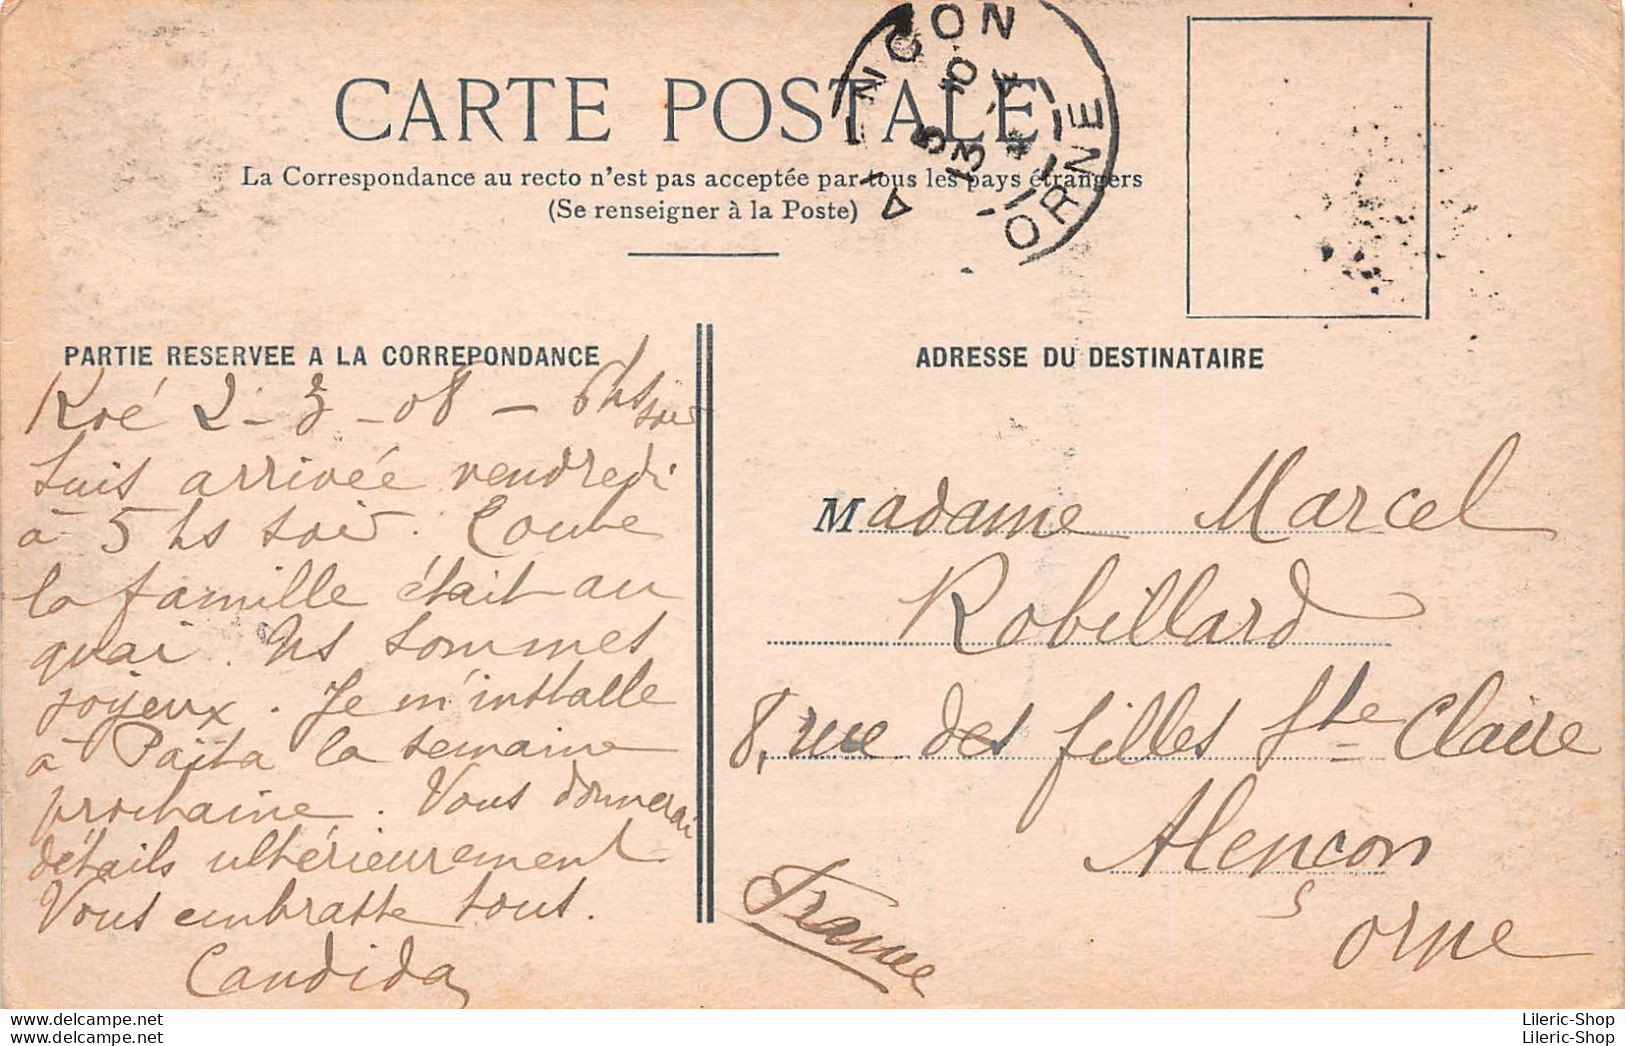 CARTE POSTALE
La Correspondance au recto n'est pas acceptée par tous les pays étrangers
(Se renseigner à la Poste)
ORNE
13
PARTIE RESERVEE A LA CORREPONDANCE
2-3-08 - 6 hs soir
Suis arrivée vendredi
à 5 hs soir. Toute
la famille était au
quai. Ns sommes
joyeux. Je m'installe
à Païta la semaine
prochaine. Vous donnerai
détails ultérieurement
Vous embrasse tous.
Candida
ADRESSE DU DESTINATAIRE
Madame Marcel
Robillard
8, rue des filles Ste Claire
Alençon
Orne
France
Lileric-Shop
Lileric-Shop
delcampe.net
delcampe.net